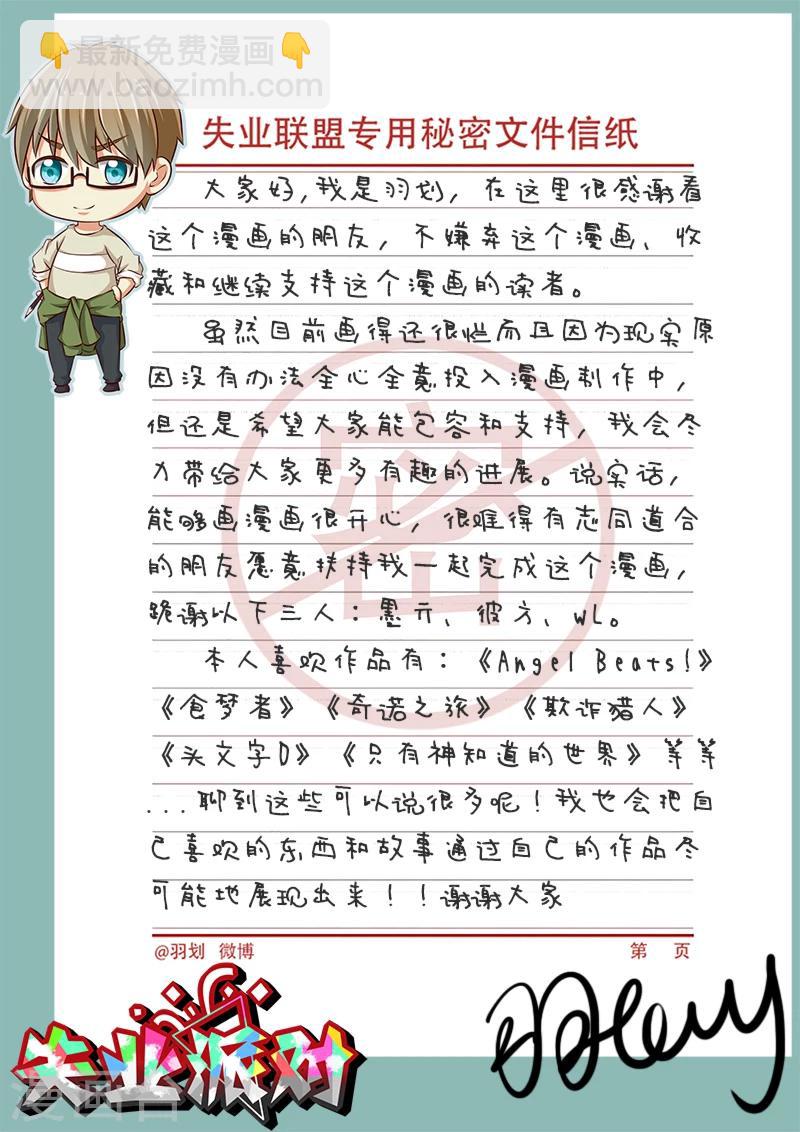 👇最新免费漫画👇
www.baozimh.com
失业联盟专用秘密文件信纸
大家好,我是羽划，在这里很感谢看
这个漫画的朋友，不嫌弃这个漫画、收
藏和继续支持这个漫画的读者。
虽然目前画得还很烂而且因为现实原
因没有办法全心全意投入漫画制作中，
但还是希望大家能包容和支持，我会尽
力带给大家更多有趣的进展。说实话，
能够画漫画很开心，很难得有志同道合
的朋友愿意扶持我一起完成这个漫画，
跪谢以下三人：墨亓、彼方、WL。
本人喜欢作品有：《Angel Beats!》
《食梦者》《奇诺之旅》《欺诈猎人》
《头文字D》《只有神知道的世界》等等
...聊到这些可以说很多呢！我也会把自
己喜欢的东西和故事通过自己的作品尽
可能地展现出来！！谢谢大家
密
@羽划 微博
第 页
失业派对
漫画台